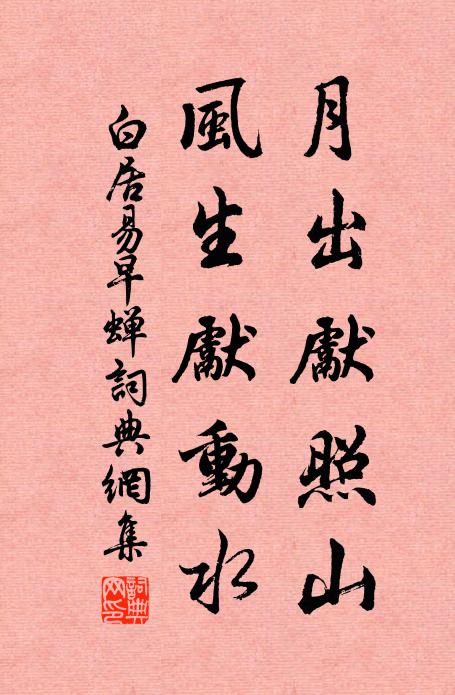 月出獻照山
風生獻動水
白居易早蝉詞典網集
詞典网印